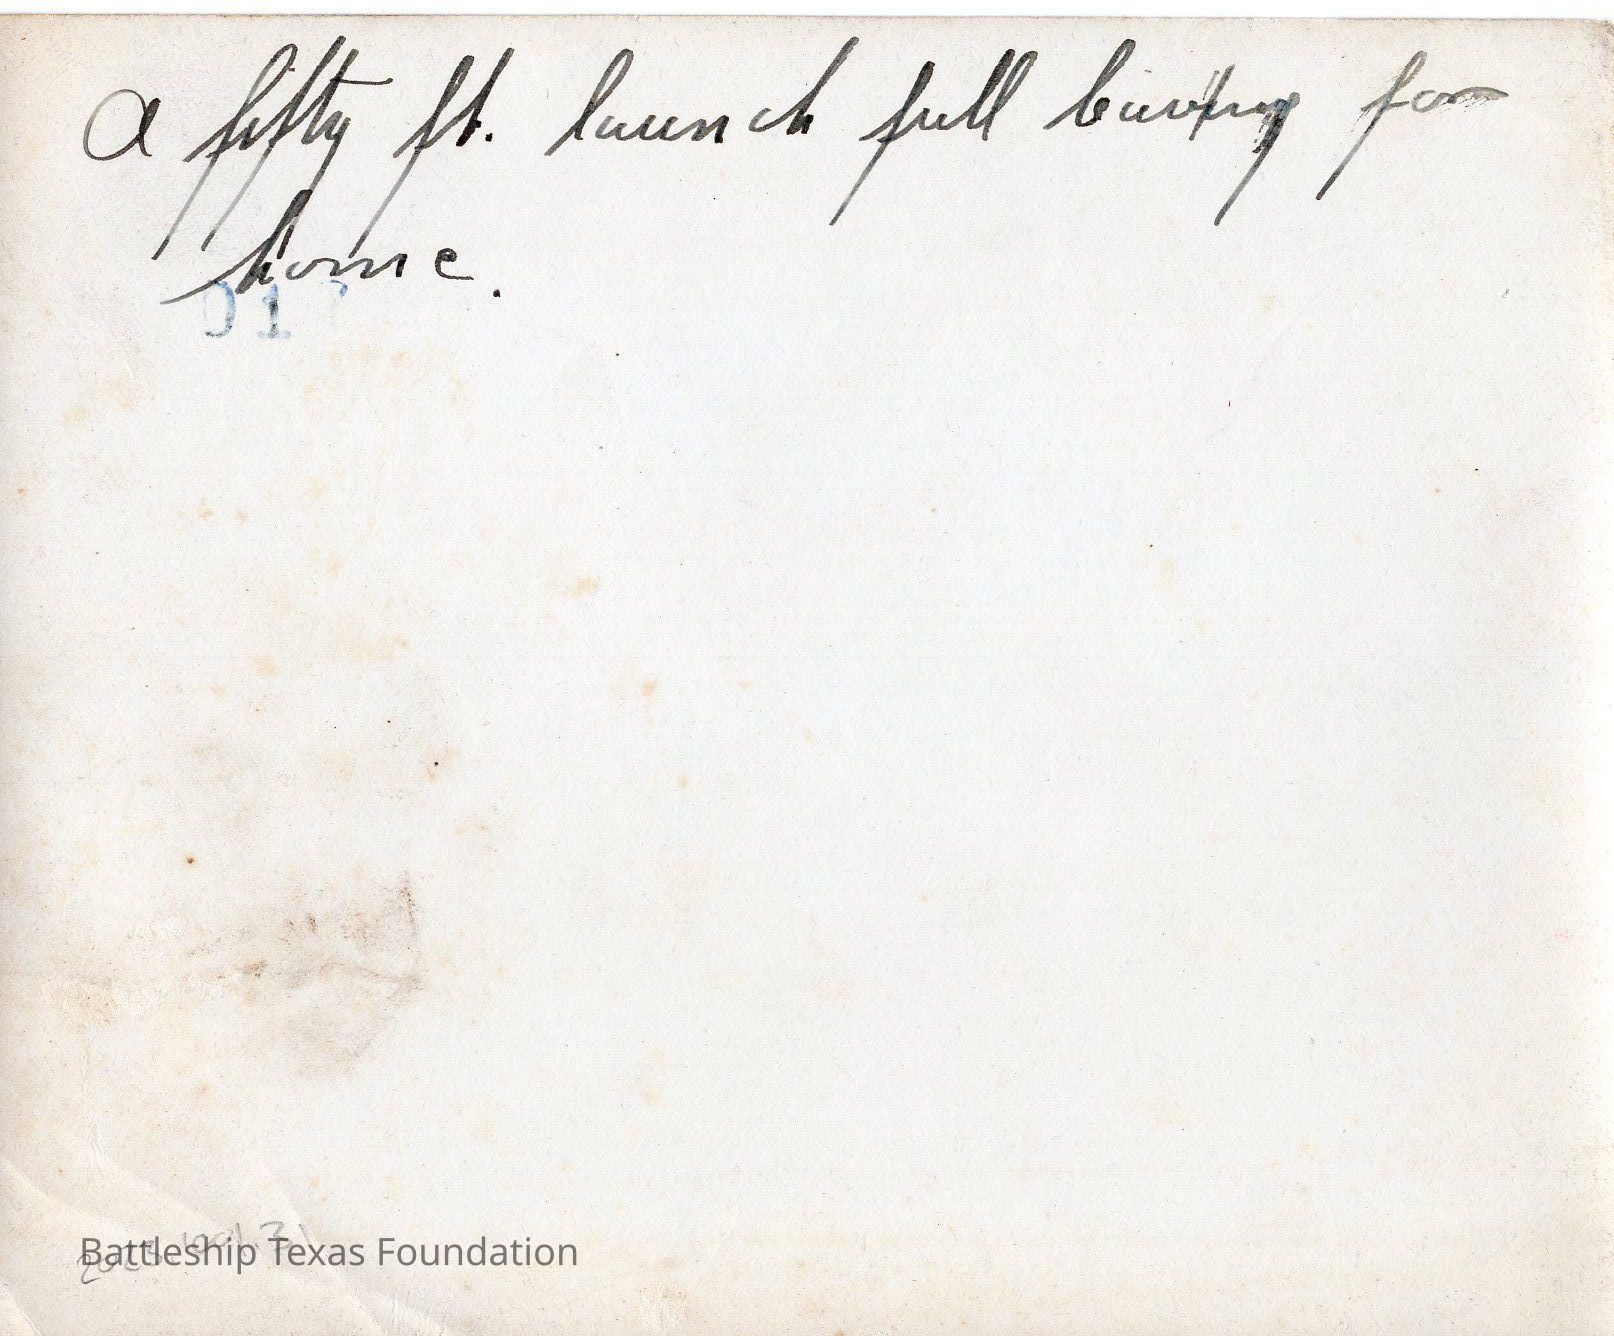 A fifty ft. launch full leaving for
home.
01
Battleship Texas Foundation